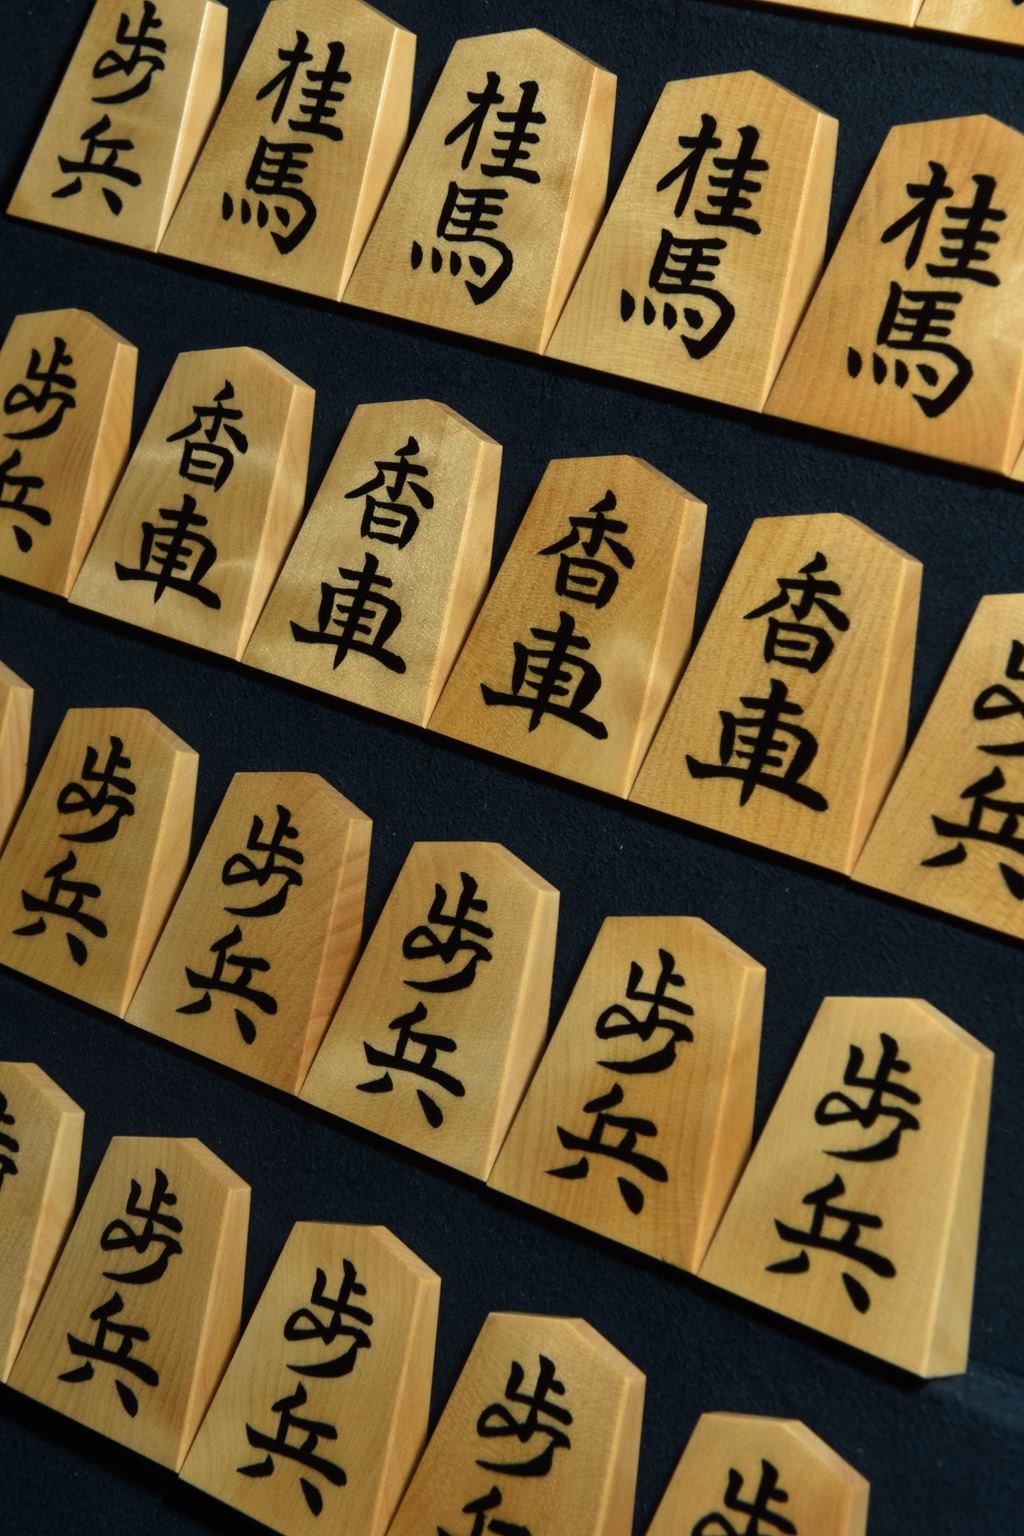 歩兵 桂馬 桂馬 桂馬 桂馬
歩兵 香車 香車 香車 香車 歩兵
歩兵 歩兵 歩兵 歩兵 歩兵
歩兵 歩兵 歩兵 歩